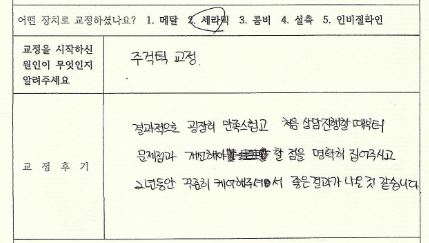 어떤 장치로 교정하셨나요? 1. 메탈 2. 세라믹 3. 콤비 4. 설측 5. 인비절라인
교정을 시작하신
원인이 무엇인지
알려주세요
주걱턱 교정.
교 정 후 기
결과적으로 굉장히 만족스럽고 처음 상담진행할 때부터
문제점과 개선해야 할 점을 명확히 집어주시고
2년동안 꾸준히 케어해주셔서 좋은결과가 나온것 같습니다.